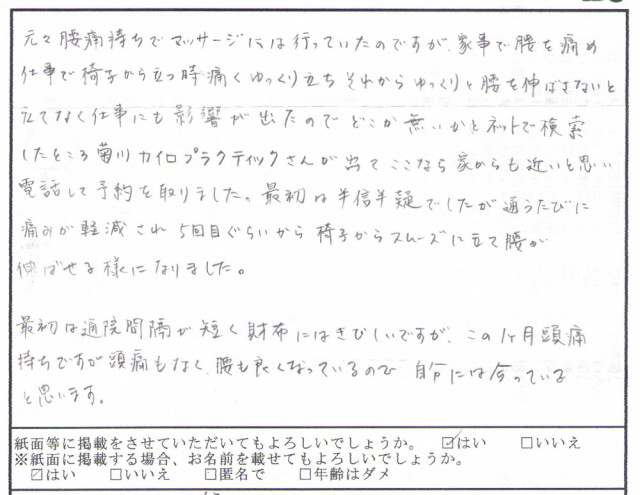 元々腰痛持ちでマッサージには行っていたのですが、家事で腰を痛め
仕事で椅子から立つ時痛くゆっくり立ちそれからゆっくりと腰を伸ばさないと
立てなく仕事にも影響が出たのでどこか無いかとネットで検索
したところ菊川カイロプラクティックさんが出てここなら家からも近いと思い
電話して予約を取りました。最初は半信半疑でしたが通うたびに
痛みが軽減され5回目ぐらいから椅子からスムーズに立て腰が
伸ばせる様になりました。
最初は通院間隔が短く財布にはきびしいですが、この1ヶ月頭痛
持ちですが頭痛もなく、腰も良くなっているので自分には合っている
と思います。
紙面等に掲載をさせていただいてもよろしいでしょうか。 ☑はい □いいえ
※紙面に掲載する場合、お名前を載せてもよろしいでしょうか。
☑はい □いいえ □匿名で □年齢はダメ